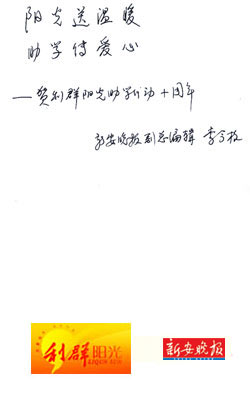 阳光送温暖
助学传爱心
——贺利群阳光助学行动十周年
新安晚报副总编辑 李
利群 阳光
LIQUN SUN
新安晚报